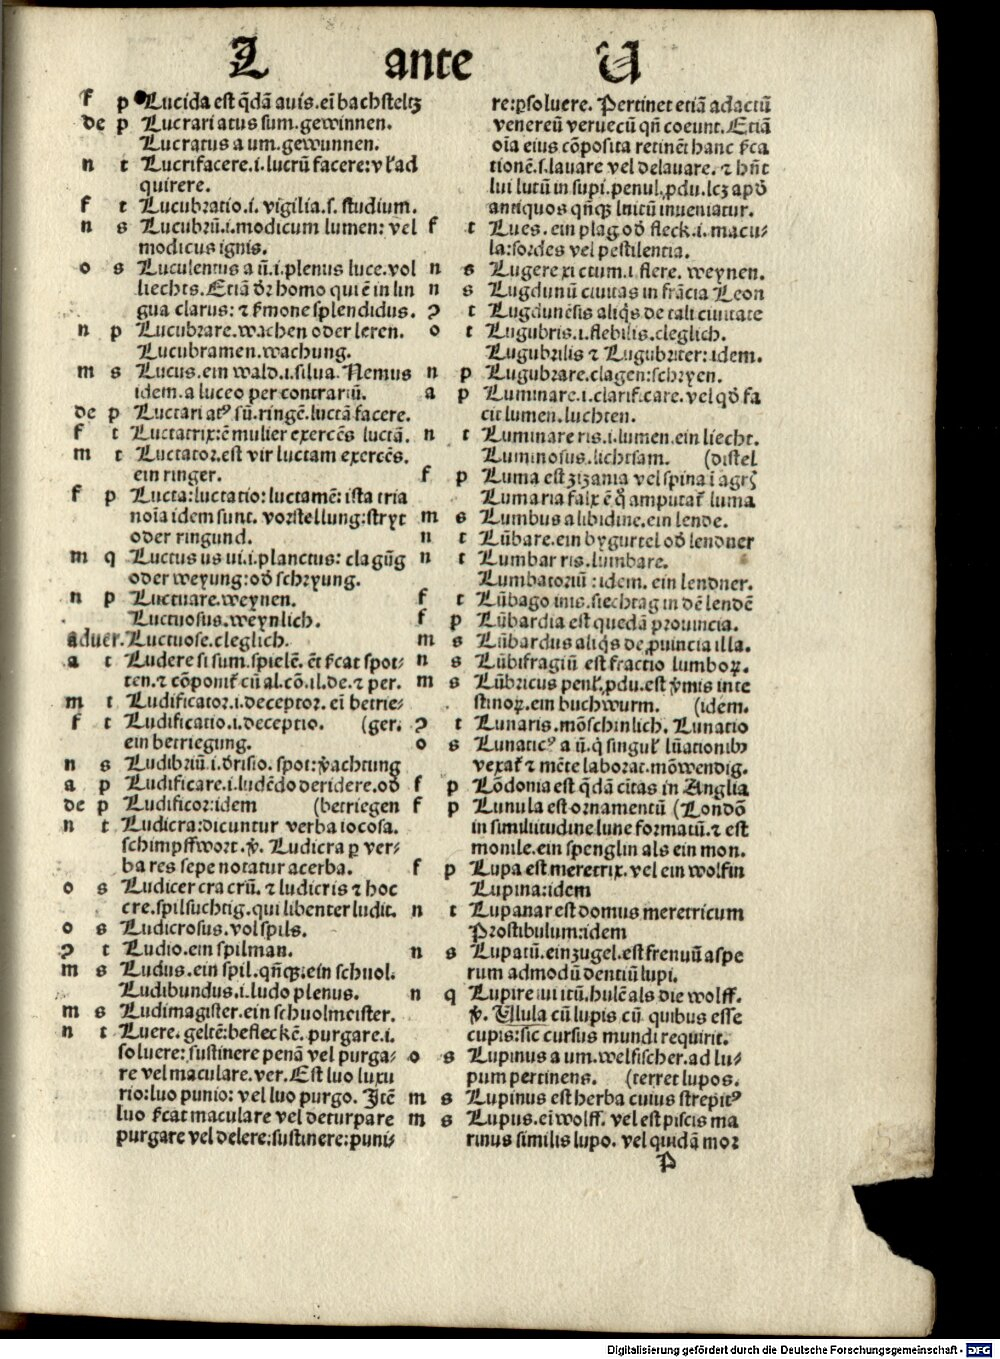 L ante U
f p Lucida est q̄dā auis. eī bachsteltz
de p Lucrari atus sum. gewinnen.
Lucratus a um. gewunnen.
n t Lucrifacere .i. lucrū facere: vł ad
quirere.
f t Lucubratio .i. vigilia .s. studium.
n s Lucubrū .i. modicum lumen: vel
modicus ignis.
o s Luculentus a ū .i. plenus luce. vol
liechts. Etiā dr̄ homo qui ē in lin
gua clarus: ⁊ s̄mone splendidus.
n p Lucubrare. wachen oder leren.
Lucubramen. wachung.
m s Lucus. ein wald .i. silua. Nemus
idem. a luceo per contrariū.
de p Luctari atꝰ sū. ringē. luctā facere.
f t Luctatrix: ē mulier exercēs luctā.
m t Luctator. est vir luctam exercēs.
ein ringer.
f p Lucta: luctatio: luctamē: ista tria
noīa idem sunt. vorstellung: stryt
oder ringund.
m q Luctus us ui .i. planctus: clagūg
oder weyung: oď schryung.
n p Luctuare. weynen.
Luctuosus. weynlich.
aduer. Luctuose. cleglich.
a t Ludere si sum. spielē. ēt s̄cat spot-
ten. ⁊ cōponit̄ cū al. cō. il. de. ⁊ per.
m t Ludificator .i. deceptor. eī betrie-
f t Ludificatio .i. deceptio. (ger.
ein betriegung.
n s Ludibriū .i. ďrisio. spot: v̄achtung
a p Ludificare .i. ludēdo deridere. oď
de p Ludificor: idem (betriegen
n t Ludicra: dicuntur verba iocosa.
schimpffwort. v̄. Ludicra ꝑ ver-
ba res sepe notatur acerba.
o s Ludicer cra crū. ⁊ ludicris ⁊ hoc
cre. spilsuchtig. qui libenter ludit.
o s Ludicrosus. vol spils.
ꝯ t Ludio. ein spilman.
m s Ludus. ein spil. qn̄qꝫ. ein schuol.
Ludibundus .i. ludo plenus.
m s Ludimagister. ein schuolmeister.
n t Luere. geltē: befleckē. purgare .i.
soluere: sustinere penā vel purga-
re vel maculare. ver. Est luo luxu
rio: luo punio: vel luo purgo. Itē
luo s̄cat maculare vel deturpare
purgare vel delere: sustinere: puni-
re: ꝑsoluere. Pertinet etiā ad actū
venereū veruecū qn̄ coeunt. Etiā
oīa eius cōposita retinēt hanc s̄ca
tionē .s. lauare vel delauare. ⁊ hn̄t
lui lutū in supi. penul. ꝓdu. lcꝫ apď
antiquos qn̄qꝫ luitū inueniatur.
f t Lues. ein plag oď fleck .i. macu-
la: sordes vel pestilentia.
n s Lugere xi ctum .i. flere. weynen.
n s Lugdunū ciuitas in frācia Leon
ꝯ t Lugdunēsis aliqs de tali ciuitate
o t Lugubris .i. flebilis. cleglich.
Lugubrilis ⁊ Lugubriter: idem.
n p Lugubrare. clagen: schryen.
a p Luminare .i. clarificare. vel qď fa
cit lumen. luchten.
n t Luminare ris .i. lumen. ein liecht.
Luminosus. lichtsam. (distel
f p Luma est zizania vel spina ī agrꝭ
Lumaria falx ē q̄ amputat̄ luma
m s Lumbus a libidine. ein lende.
n t Lūbare. ein bygurtel oď lendner
n t Lumbar ris. lumbare.
Lumbatoriū: idem. ein lendner.
f t Lūbago inis. siechtag in dē lendē
f p Lūbardia est quedā prouincia.
m s Lūbardus aliqs de ꝓuincia illa.
n s Lūbifragiū est fractio lumboꝝ.
m s Lūbricus penł. ꝓdu. est v̄mis inte
stinoꝝ. ein buchwurm. (idem.
ꝯ t Lunaris. mōschinlich. Lunatio
o s Lunaticꝰ a ū. q singuł lūationibꝫ
vexat̄ ⁊ mēte laborat. mōwendig.
f p Lōdonia est q̄dā citas in Anglia
f p Lunula est ornamentū (Londō
in similitudine lune formatū. ⁊ est
monile. ein spenglin als ein mon.
f p Lupa est meretrix. vel ein wolfin
Lupina: idem
n t Lupanar est domus meretricum
Prostibulum: idem
n s Lupatū. ein zugel. est frenuū aspe
rum admodū dentiū lupi.
n q Lupire iui itū. hulē als die wolff.
v̄. Ullula cū lupis cū quibus esse
cupis: sic cursus mundi requirit.
o s Lupinus a um. welfischer. ad lu-
pum pertinens. (terret lupos.
m s Lupinus est herba cuius strepitꝰ
m s Lupus. eī wolff. vel est piscis ma
rinus similis lupo. vel quidā mor
P
Digitalisierung gefördert durch die Deutsche Forschungsgemeinschaft - DFG